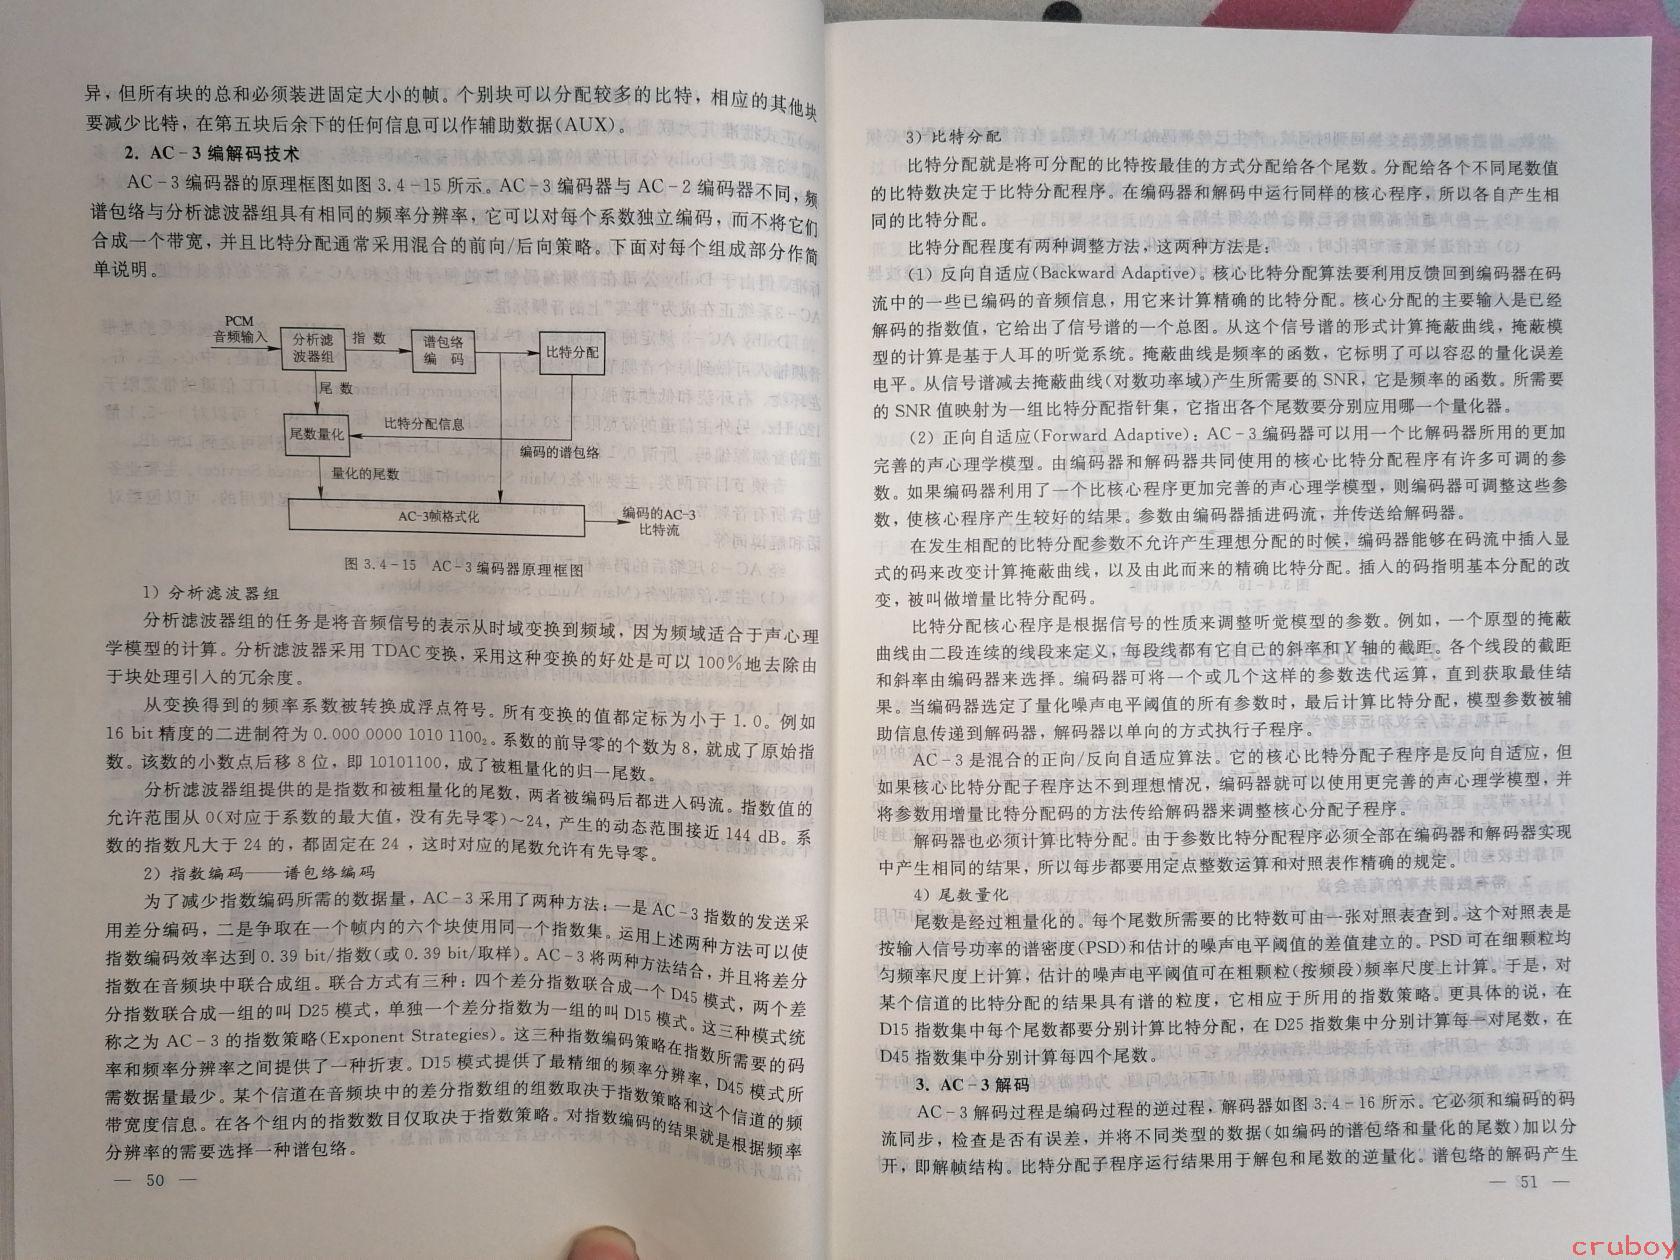 异，但所有块的总和必须装进固定大小的帧。个别块可以分配较多的比特，相应的其他块
要减少比特，在第五块后余下的任何信息可以作辅助数据(AUX)。
2. AC-3编解码技术
AC-3编码器的原理框图如图3.4-15所示。AC-3编码器与AC-2编码器不同，频
谱包络与分析滤波器组具有相同的频率分辨率，它可以对每个系数独立编码，而不将它们
合成一个带宽，并且比特分配通常采用混合的前向/后向策略。下面对每个组成部分作简
单说明。
PCM
音频输入
分析滤
波器组
指 数
谱包络
编 码
比特分配
尾 数
尾数量化
比特分配信息
编码的谱包络
量化的尾数
AC-3帧格式化
编码的AC-3
比特流
图 3.4-15 AC-3编码器原理框图
1) 分析滤波器组
分析滤波器组的任务是将音频信号的表示从时域变换到频域，因为频域适合于声心理
学模型的计算。分析滤波器采用TDAC变换，采用这种变换的好处是可以100%地去除由
于块处理引入的冗余度。
从变换得到的频率系数被转换成浮点符号。所有变换的值都定标为小于1.0。例如
16 bit精度的二进制符为0.000 0000 1010 1100₂。系数的前导零的个数为8，就成了原始指
数。该数的小数点后移8位，即10101100，成了被粗量化的归一尾数。
分析滤波器组提供的是指数和被粗量化的尾数，两者被编码后都进入码流。指数值的
允许范围从0(对应于系数的最大值，没有先导零)～24，产生的动态范围接近144 dB。系
数的指数凡大于24的，都固定在24，这时对应的尾数允许有先导零。
2) 指数编码——谱包络编码
为了减少指数编码所需的数据量，AC-3采用了两种方法：一是AC-3指数的发送采
用差分编码，二是争取在一个帧内的六个块使用同一个指数集。运用上述两种方法可以使
指数编码效率达到0.39 bit/指数(或0.39 bit/取样)。AC-3将两种方法结合，并且将差分
指数在音频块中联合成组。联合方式有三种：四个差分指数联合成一个D45模式，两个差
分指数联合成一组的叫D25模式，单独一个差分指数为一组的叫D15模式。这三种模式统
称之为AC-3的指数策略(Exponent Strategies)。这三种指数编码策略在指数所需要的码
率和频率分辨率之间提供了一种折衷。D15模式提供了最精细的频率分辨率，D45模式所
需数据量最少。某个信道在音频块中的差分指数组的组数取决于指数策略和这个信道的频
带宽度信息。在各个组内的指数数目仅取决于指数策略。对指数编码的结果就是根据频率
分辨率的需要选择一种谱包络。
— 50 —
3) 比特分配
比特分配就是将可分配的比特按最佳的方式分配给各个尾数。分配给各个不同尾数值
的比特数决定于比特分配程序。在编码器和解码中运行同样的核心程序，所以各自产生相
同的比特分配。
比特分配程度有两种调整方法，这两种方法是：
(1) 反向自适应(Backward Adaptive)。核心比特分配算法要利用反馈回到编码器在码
流中的一些已编码的音频信息，用它来计算精确的比特分配。核心分配的主要输入是已经
解码的指数值，它给出了信号谱的一个总图。从这个信号谱的形式计算掩蔽曲线，掩蔽模
型的计算是基于人耳的听觉系统。掩蔽曲线是频率的函数，它标明了可以容忍的量化误差
电平。从信号谱减去掩蔽曲线(对数功率域)产生所需要的SNR，它是频率的函数。所需要
的SNR值映射为一组比特分配指针集，它指出各个尾数要分别应用哪一个量化器。
(2) 正向自适应(Forward Adaptive)：AC-3编码器可以用一个比解码器所用的更加
完善的声心理学模型。由编码器和解码器共同使用的核心比特分配程序有许多可调的参
数。如果编码器利用了一个比核心程序更加完善的声心理学模型，则编码器可调整这些参
数，使核心程序产生较好的结果。参数由编码器插进码流，并传送给解码器。
在发生相配的比特分配参数不允许产生理想分配的时候，编码器能够在码流中插入显
式的码来改变计算掩蔽曲线，以及由此而来的精确比特分配。插入的码指明基本分配的改
变，被叫做增量比特分配码。
比特分配核心程序是根据信号的性质来调整听觉模型的参数。例如，一个原型的掩蔽
曲线由二段连续的线段来定义，每段线都有它自己的斜率和Y轴的截距。各个线段的截距
和斜率由编码器来选择。编码器可将一个或几个这样的参数迭代运算，直到获取最佳结
果。当编码器选定了量化噪声电平阈值的所有参数时，最后计算比特分配，模型参数被辅
助信息传递到解码器，解码器以单向的方式执行子程序。
AC-3是混合的正向/反向自适应算法。它的核心比特分配子程序是反向自适应，但
如果核心比特分配子程序达不到理想情况，编码器就可以使用更完善的声心理学模型，并
将参数用增量比特分配码的方法传给解码器来调整核心分配子程序。
解码器也必须计算比特分配。由于参数比特分配程序必须全部在编码器和解码器实现
中产生相同的结果，所以每步都要用定点整数运算和对照表作精确的规定。
4) 尾数量化
尾数是经过粗量化的。每个尾数所需要的比特数可由一张对照表查到。这个对照表是
按输入信号功率的谱密度(PSD)和估计的噪声电平阈值的差值建立的。PSD可在细颗粒均
匀频率尺度上计算，估计的噪声电平阈值可在粗颗粒(按频段)频率尺度上计算。于是，对
某个信道的比特分配的结果具有谱的粒度，它相应于所用的指数策略。更具体的说，在
D15指数集中每个尾数都要分别计算比特分配，在D25指数集中分别计算每一对尾数，在
D45指数集中分别计算每四个尾数。
3. AC-3解码
AC-3解码过程是编码过程的逆过程，解码器如图3.4-16所示。它必须和编码的码
流同步，检查是否有误差，并将不同类型的数据(如编码的谱包络和量化的尾数)加以分
开，即解帧结构。比特分配子程序运行结果用于解包和尾数的逆量化。谱包络的解码产生
— 51 —
cruboy